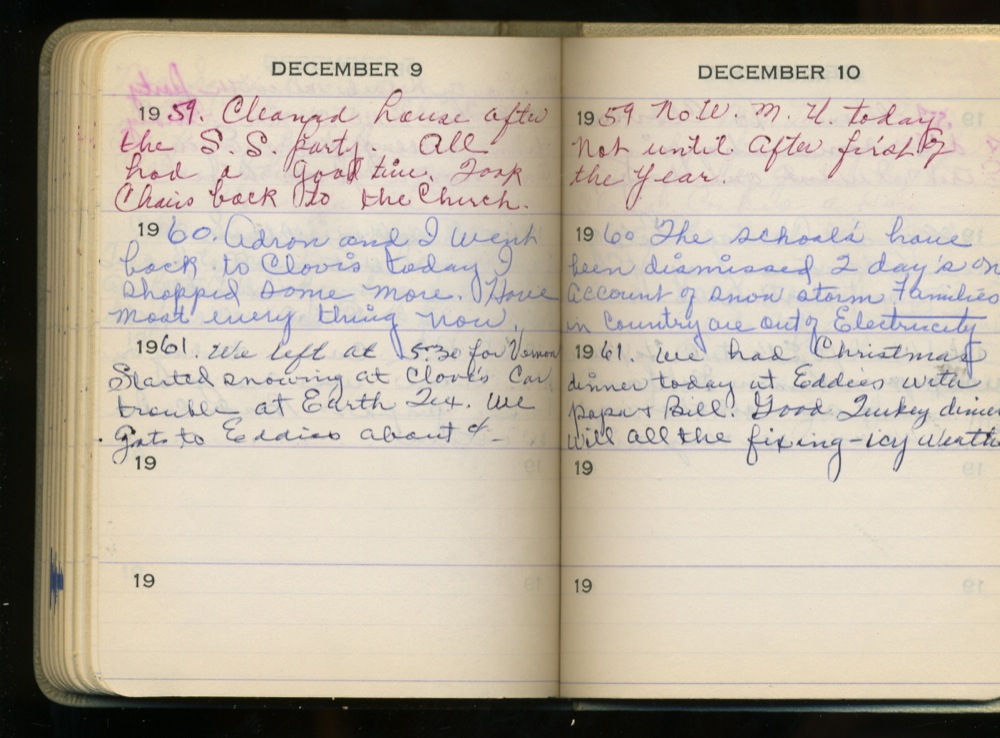 DECEMBER 9
1959. Cleaned house after
the S. S. party. All
had a good time. Took
Chairs back to the Church.
1960. Adron and I went
back to Clovis today I
shopped some more. Have
most every thing now.
1961. We left at 5:30 for Vernon
Started snowing at Clovis Car
trouble at Earth Tex. We
gots to Eddies about
19
19
DECEMBER 10
1959 No W. M. U. today
Not until after first of
the year.
1960 The schools have
been dismissed 2 day's on
account of snow storm Families
in Country are out of Electricity
1961. We had Christmas
dinner today at Eddies with
papa & Bill. Good Turkey dinner
will all the fixing-icy Weathe
19
19